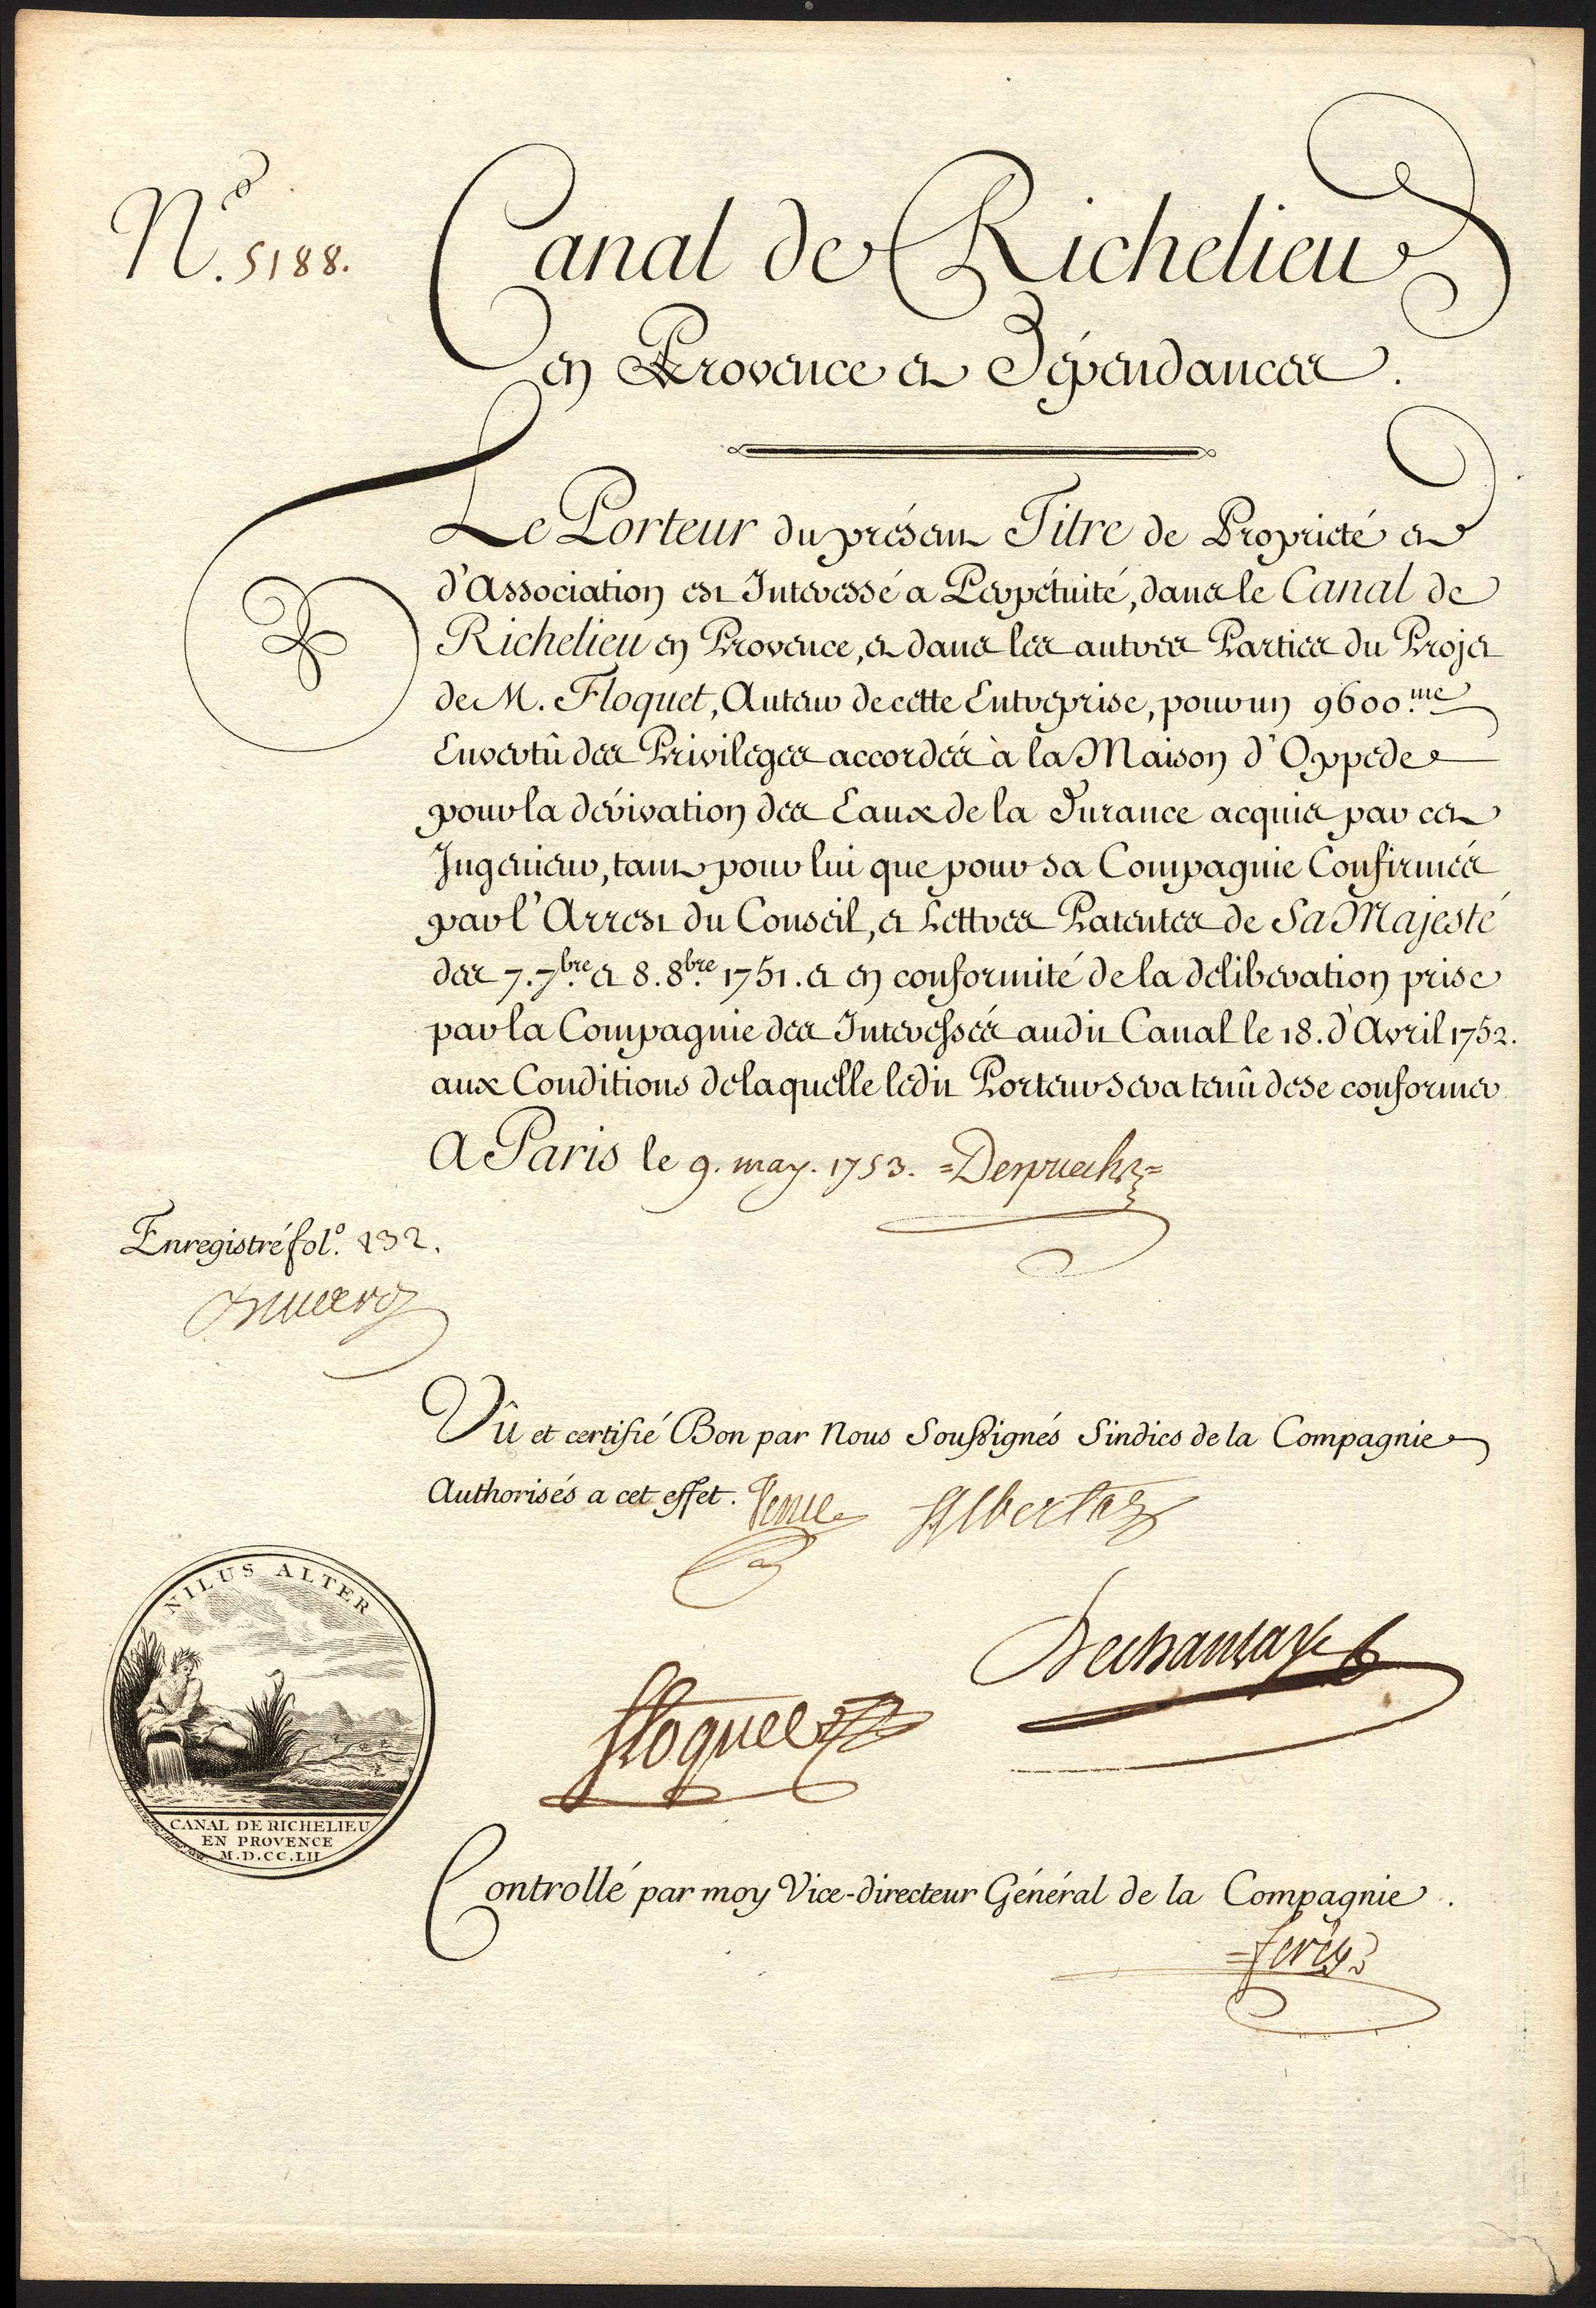 N.º 5188.
Canal de Richelieu
en Provence et Dépendances.
Le Porteur du présent Titre de Propriété et
d'Association est Interessé a Perpétuité, dans le Canal de
Richelieu en Provence, et dans les autres Parties du Projet
de M. Floquet, Auteur de cette Entreprise, pour un 9600.me
En vertû des Privileges accordés à la Maison d'Oppede
pour la dérivation des Eaux de la Durance acquis par cet
Ingenieur, tant pour lui que pour sa Compagnie Confirmés
par l'Arrest du Conseil, et Lettres Patentes de Sa Majesté
des 7. 7.bre et 8. 8.bre 1751. et en conformité de la deliberation prise
par la Compagnie des Interessés audit Canal le 18. d'Avril 1752.
aux Conditions de laquelle ledit Porteur sera tenû de se conformer
A Paris le 9. may. 1753.
Enregistré fol.º 132.
Vû et certifié Bon par Nous Soussignés Sindics de la Compagnie
Authorisés a cet effet.
Albertas
Floquet
NILUS ALTER
CANAL DE RICHELIEU
EN PROVENCE
M.D.CC.LII
Controllé par moy Vice-directeur Général de la Compagnie.